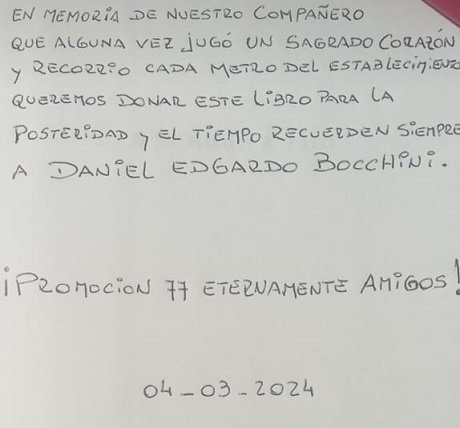 EN MEMORIA DE NUESTRO COMPAÑERO
QUE ALGUNA VEZ JUGÓ UN SAGRADO CORAZÓN
Y RECORRIO CADA METRO DEL ESTABLECIMIENTO
QUEREMOS DONAR ESTE LIBRO PARA LA
POSTERIDAD Y EL TIEMPO RECUERDEN SIEMPRE
A DANIEL EDGARDO BOCCHINI.
¡PROMOCION 77 ETERNAMENTE AMIGOS!
04-03-2024